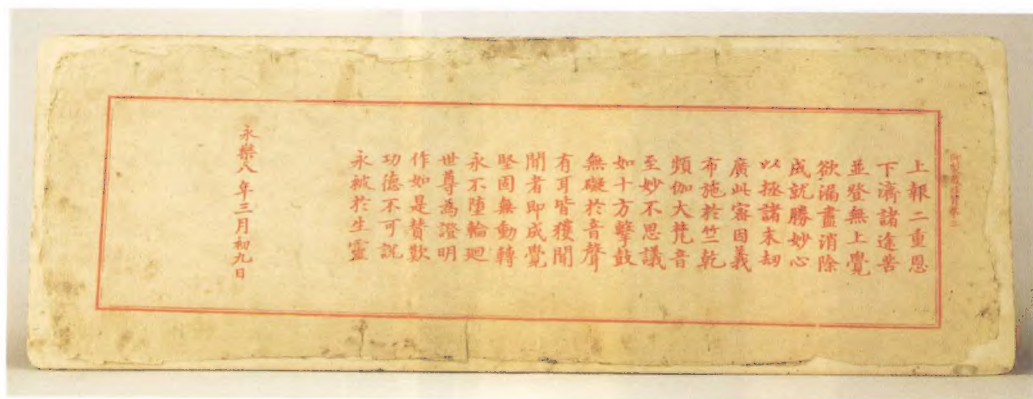 上報二重恩
下濟諸途苦
並登無上覺
欲漏盡消除
成就勝妙心
以拯諸末劫
廣此審因義
布施於竺乾
頻伽大梵音
至妙不思議
如十方擊鼓
無礙於音聲
有耳皆獲聞
聞者即成覺
堅固無動轉
永不墮輪廻
世尊為證明
作如是賛歎
功德不可説
永被於生靈
永樂八年三月初九日